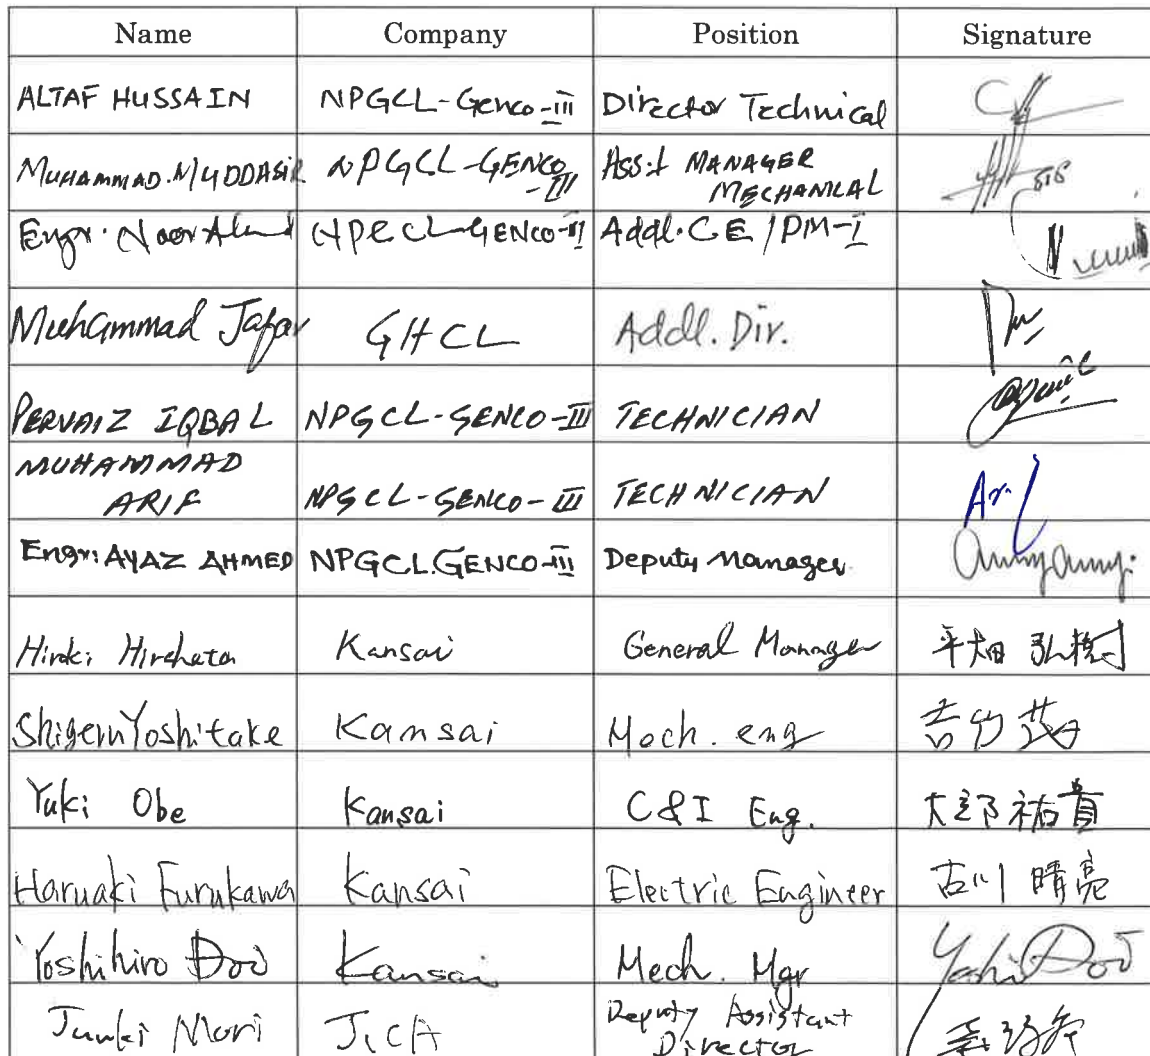 Name Company Position Signature
ALTAF HUSSAIN NPGCL-Genco-III Director Technical
MUHAMMAD.MUDDASIR NPGCL-GENCO-III Ass:t MANAGER
MECHANICAL
Engr. Noor GENCO-III Addl.CE/PM-I
Muhammad Jafar GHCL Addl. Dir.
PERVAIZ IQBAL NPGCL-GENCO-III TECHNICIAN
MUHAMMAD
ARIF NPGCL-GENCO-III TECHNICIAN
Engr: AYAZ AHMED NPGCL.GENCO-III Deputy Manager
Hiroki Hirahata Kansai General Manager 平畑 弘樹
Shigeru Yoshitake Kansai Mech. eng 吉竹 茂
Yuki Obe Kansai C&I Eng. 大部 祐貴
Haruaki Furukawa Kansai Electric Engineer 古川 晴亮
Yoshihiro Doi Kansai Mech. Mgr Yoshi Doi
Junki Mori JICA Deputy Assistant
Director